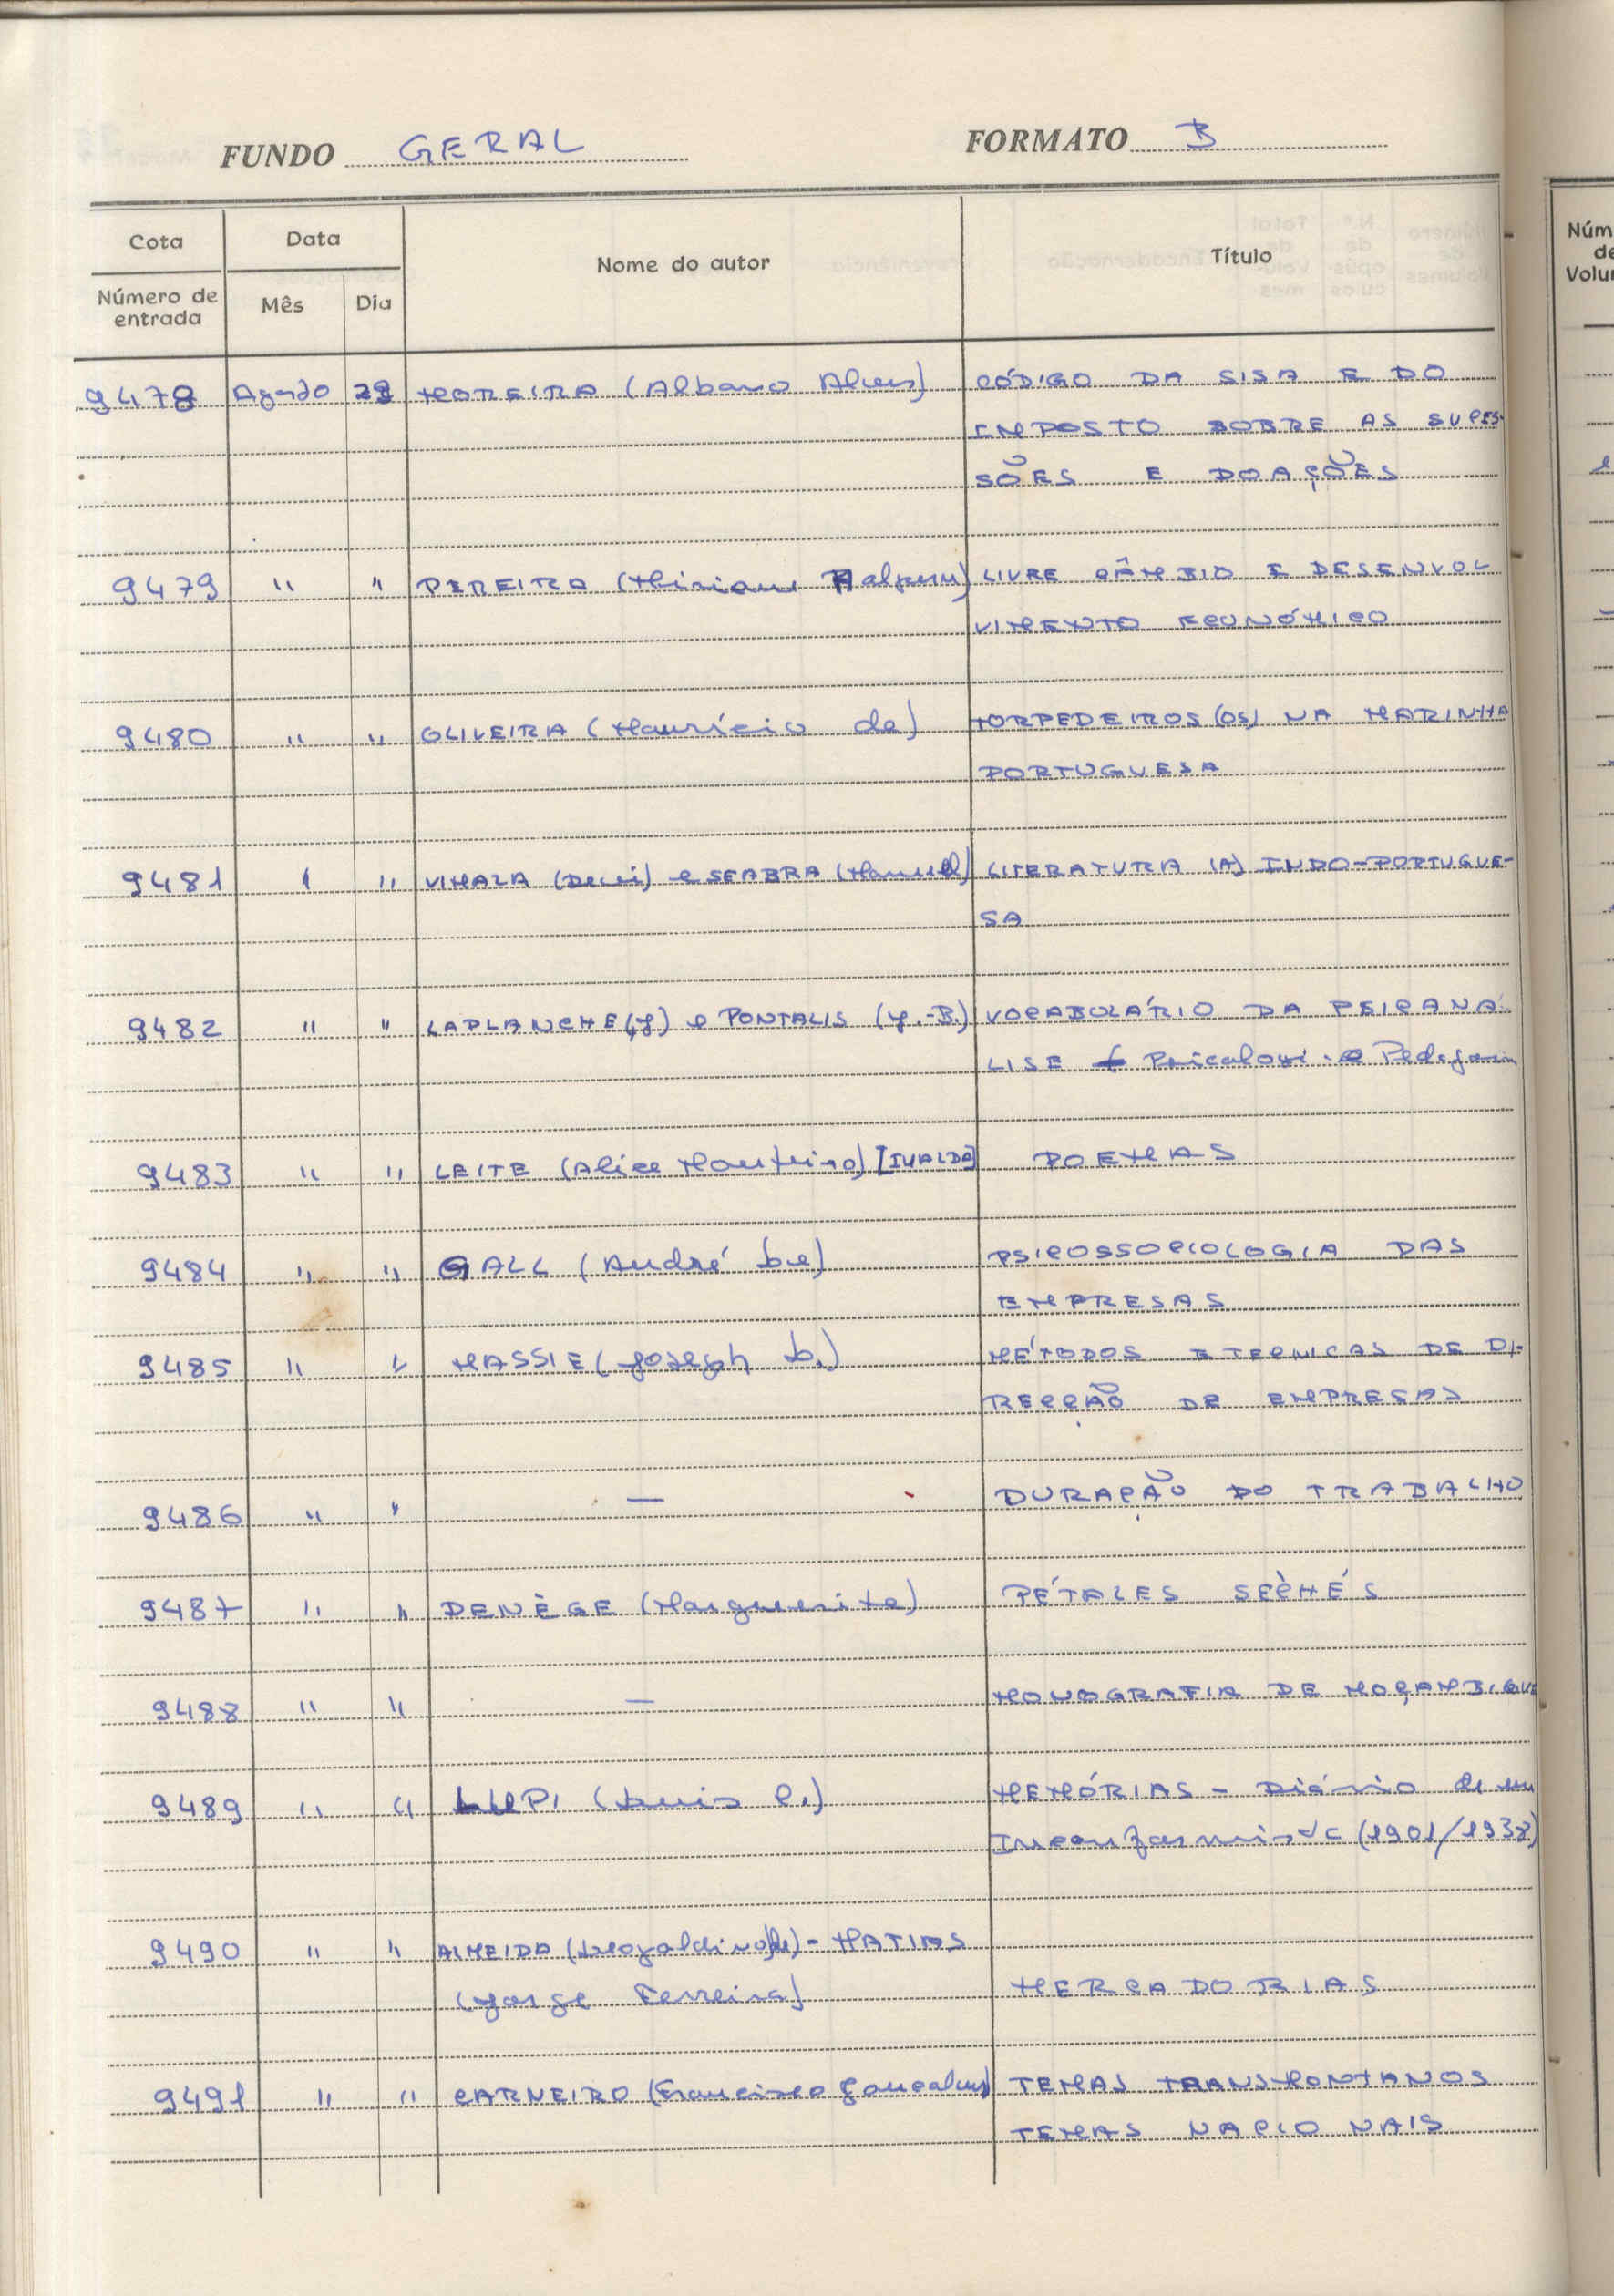 FUNDO GERAL FORMATO B
Cota Data Nome do autor Título
Número de entrada Mês Dia
Núm
de
Volu
9478 Agosto 29 MOREIRA (Albano Alves) CÓDIGO DA SISA E DO
IMPOSTO SOBRE AS SUCES-
SÕES E DOAÇÕES
9479 " " PEREIRA (Miriam Halpern) LIVRE CÂMBIO E DESENVOL
VIMENTO ECONÓMICO
9480 " " OLIVEIRA (Maurício de) TORPEDEIROS (OS) NA MARINHA
PORTUGUESA
9481 " " VIMALA (Devi) e SEABRA (Manuel) LITERATURA (A) INDO-PORTUGUE-
SA
9482 " " LAPLANCHE (J) e PONTALIS (J.-B.) VOCABULÁRIO DA PSICANÁ-
LISE e Pedagogia
9483 " " LEITE (Alice Monteiro) POEMAS
9484 " " GALL (André Le) PSICOSSOCIOLOGIA DAS
EMPRESAS
9485 " " MASSIE (Joseph L.) MÉTODOS E TECNICAS DE DI-
RECÇÃO DE EMPRESAS
9486 " " — DURAÇÃO DO TRABALHO
9487 " " DENÈGE (Marguerite) PÉTALES SÈCHÉS
9488 " " — MONOGRAFIA DE MOÇAMBIQUE
9489 " " LUPI (Luis C.) MEMÓRIAS - Diário de um
Inconformista (1901/1938)
9490 " " ALMEIDA (Leogaldino de) - MATIAS
(Jorge Ferreira) MERCADORIAS
9491 " " CARNEIRO (Francisco Gonçalves) TEMAS TRANSMONTANOS
TEMAS NACIONAIS